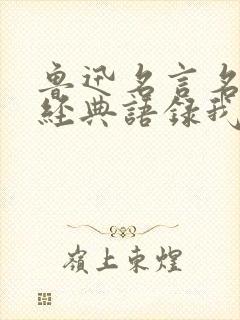 魯迅名言名
經典語録我
嶺上東煌